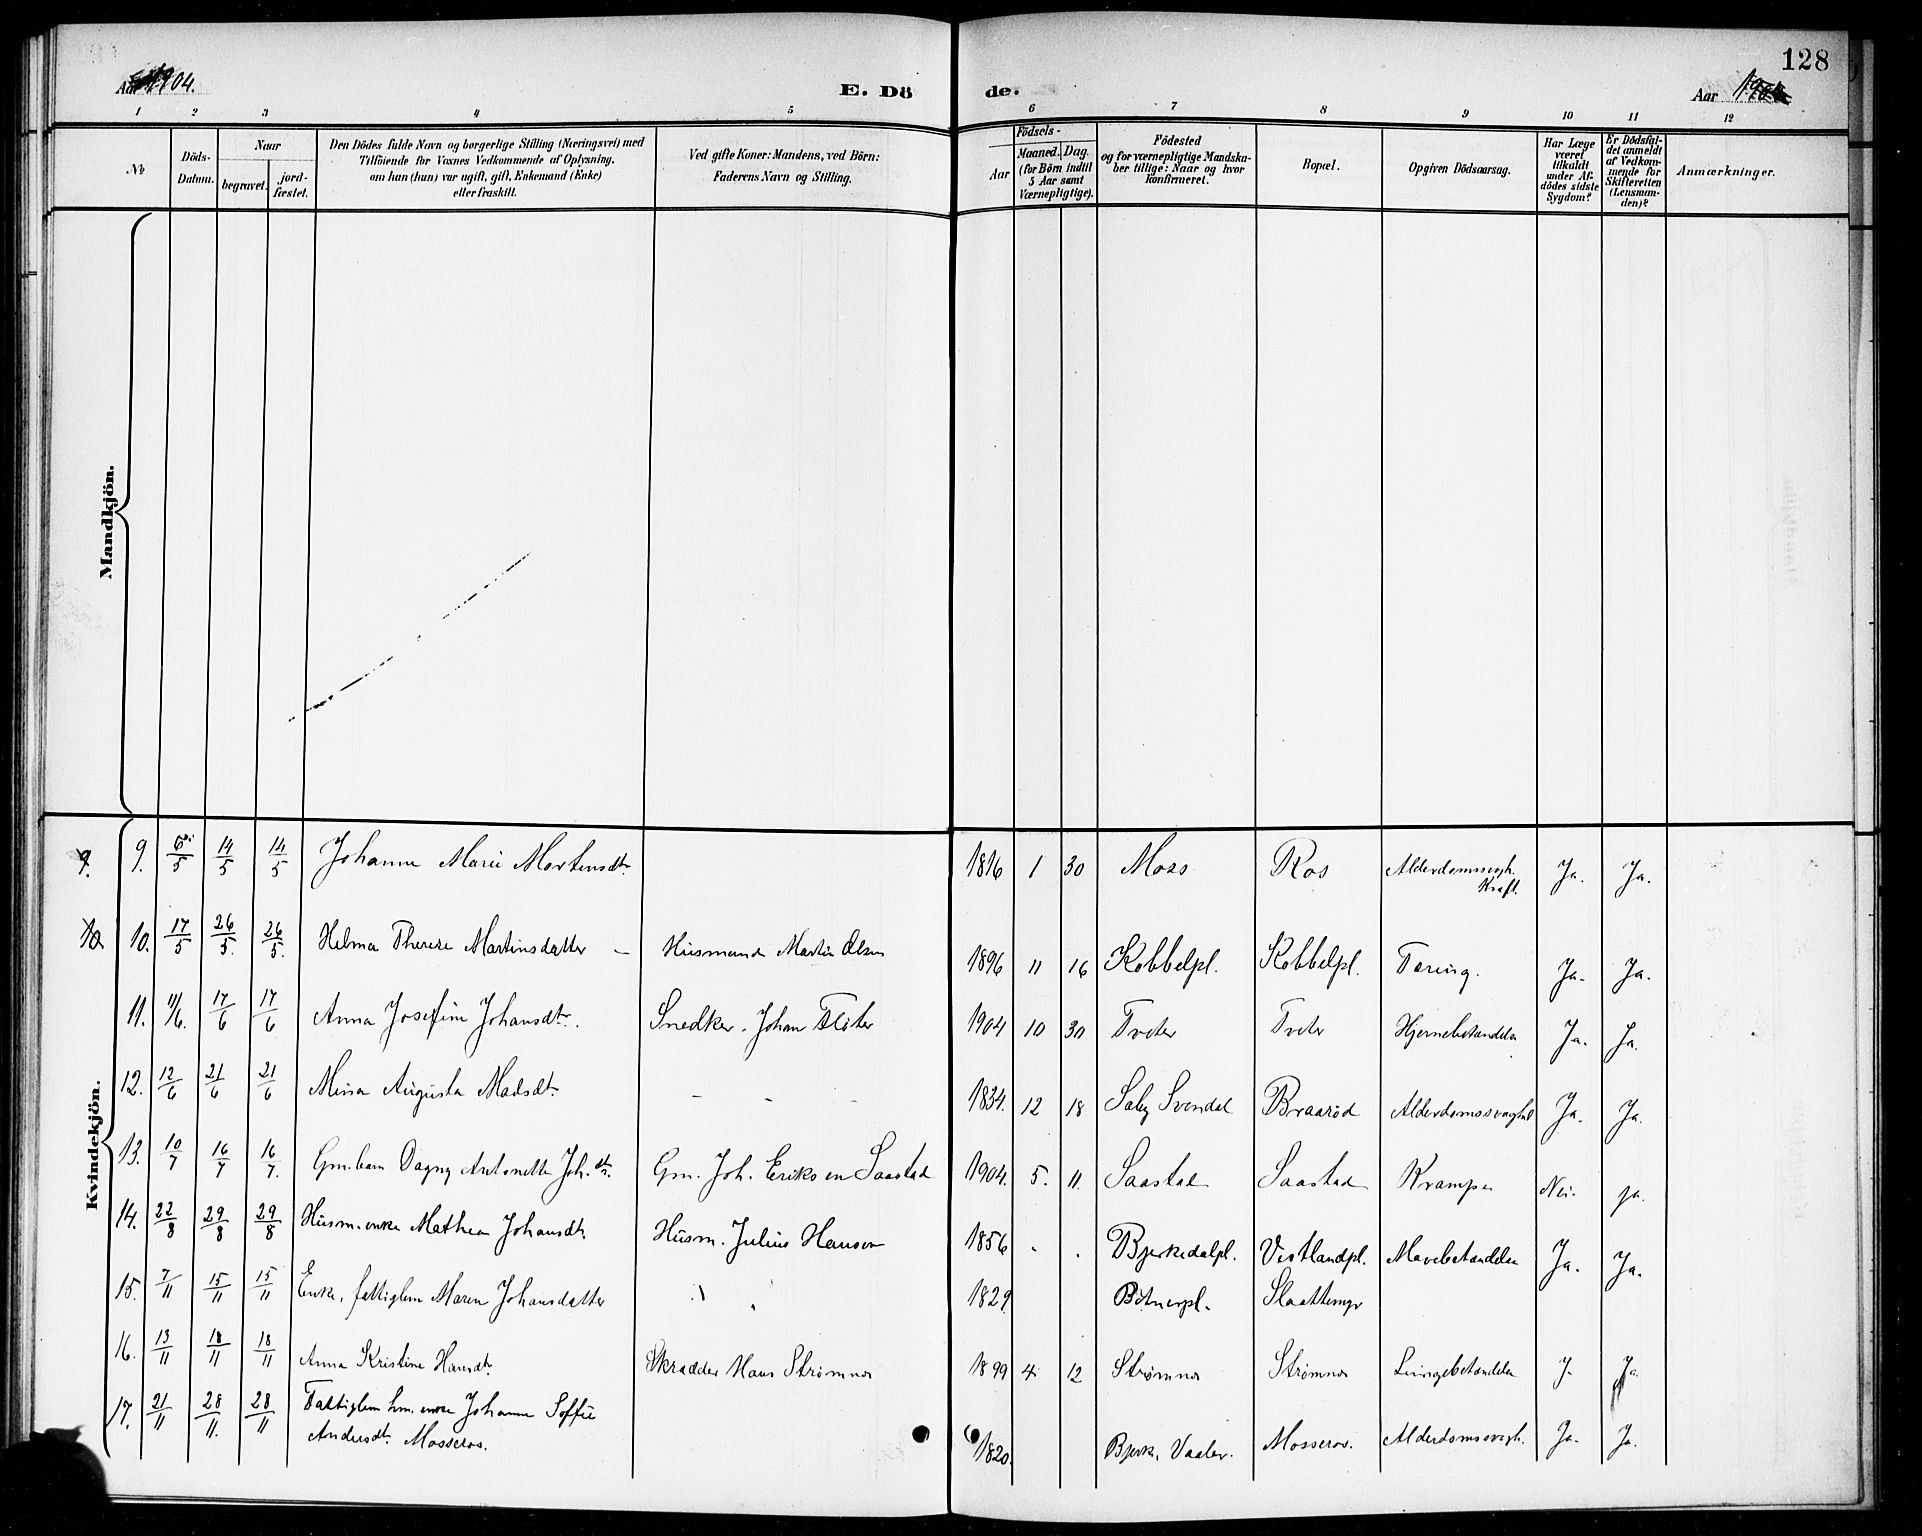 128
Aar 1904.
E. Dö
de.
Aar
1 2 3 4 5 6 7 8 9 10 11 12
№
Döds-
Datum.
Naar
begravet.
jord-
fæstet.
Den Dödes fulde Navn og borgerlige Stilling (Næringsvei) med
Tilföiende for Voxnes Vedkommende af Oplysning,
om han (hun) var ugift, gift, Enkemand (Enke)
eller fraskilt.
Ved gifte Koner: Mandens, ved Börn:
Faderens Navn og Stilling.
Födsels-
Aar
Maaned. Dag.
(for Börn indtil
5 Aar samt
Værnepligtige).
Födested
og for værnepligtige Mandska-
ber tillige: Naar og hvor
konfirmeret.
Bopæl.
Opgiven Dödsaarsag.
Har Læge
været
tilkaldt
under Af-
dödes sidste
Sygdom?
Er Dödsfal-
det anmeldt
af Vedkom-
mende for
Skifteretten
(Lensman-
den)?
Anmærkninger.
Mandkjön.
Kvindekjön.
9. 9. 6/5 14/5 14/5 Johanne Marie Mortensdtr. 1816 1 30 Moss Ros Alderdomssvgh. Ja. Ja.
Kraft.
10 10. 17/5 26/5. 26/5. Helma Therese Martinsdatter — Husmand Martin Olsen 1896 11 16 Kobbelpl. Kobbelpl. Tæring. Ja. Ja.
11. 11/6. 17/6 17/6 Anna Josefine Johansdtr. Snedker. Johan 1904 10 30 Tveter Tveter Hjernebetændelse Ja. Ja.
12. 12/6 21/6 21/6 Mina Augusta Madsdtr. - - - 1834. 12 18 Saby Svendal Braarød Alderdomssvaghed Ja. Ja.
13. 10/7 16/7 16/7. Gm. barn Dagny Antonette Joh. dtr. Gm. Joh. Eriksen Saastad 1904. 5. 11. Saastad Saastad Krampe Nei. ja.
14. 22/8 29/8 29/8 Husm. enke Mathea Johansdtr. Husm. Julius Hansen 1856 . . Bjerkedalpl. Vestlandpl. Mavebetændelse Ja. Ja.
15. 7/11 15/11 15/11 Enke, fattiglem Maren Johansdatter 1829 Bitnerpl. Slaattemyr
16. 13/11 18/11 18/11 Anna Kristine Hansdtr. Skrædder Hans Strømnes 1899 4 12 Strømnes Strømnes Lungebetændelse J. Ja.
17. 21/11 28/11. 28/11 Fattiglem hm. enke Johanne Soffie
Andersdtr. Mosseros. 1820. Bjerk, Vaaler. Mosseros. Alderdomssvagh. Ja. Ja.